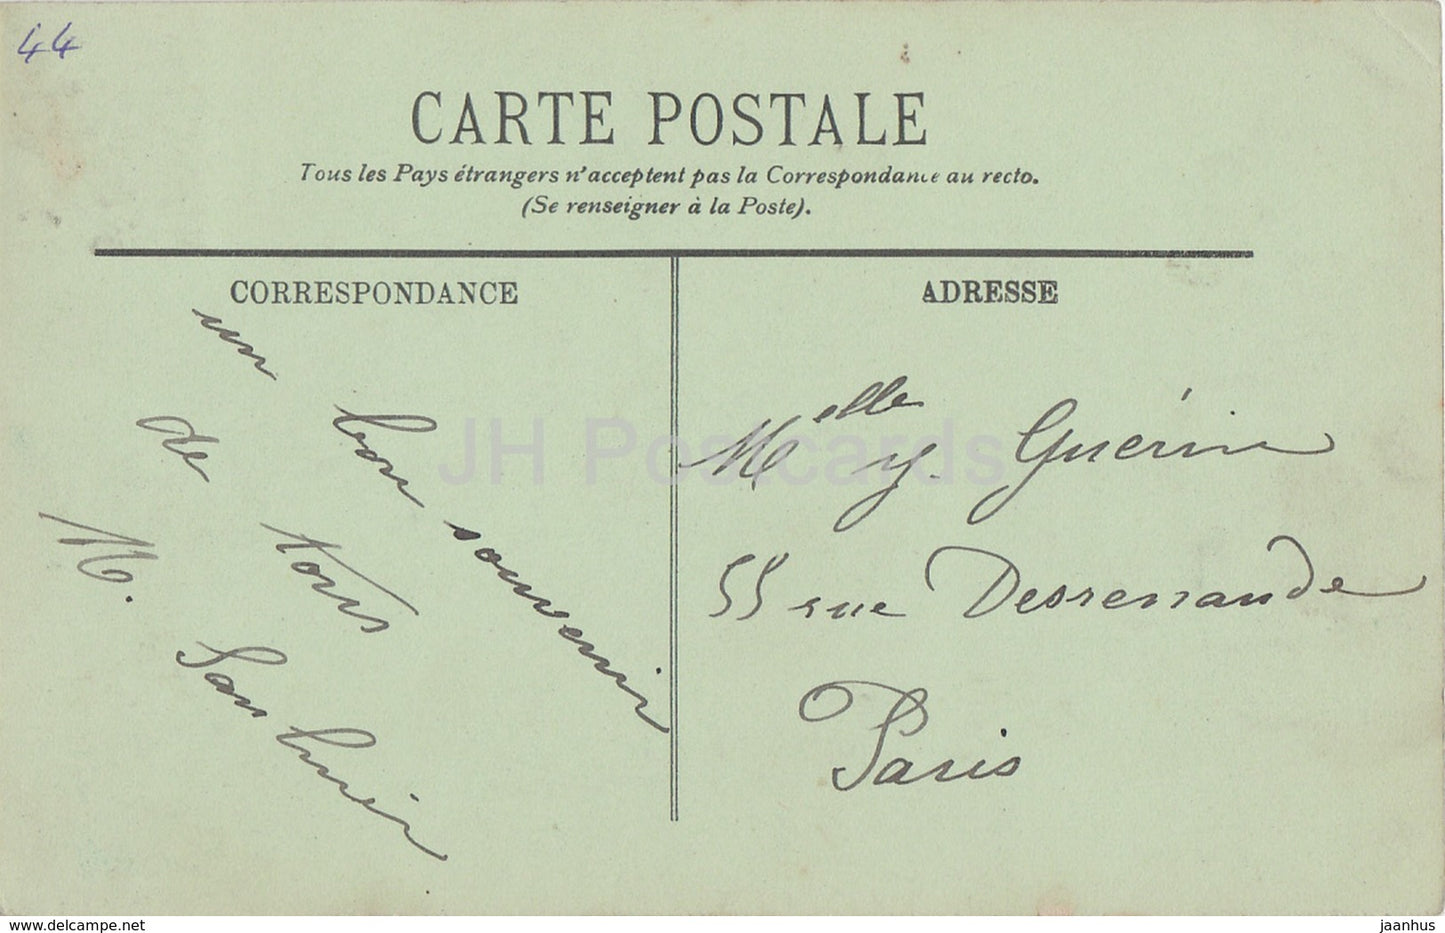 44
CARTE POSTALE
Tous les Pays étrangers n'acceptent pas la Correspondance au recto.
(Se renseigner à la Poste).
CORRESPONDANCE
un bon souvenir
de tous
M.
ADRESSE
Melle y. Guérin
55 rue
Paris
JH Postcards
www.delcampe.net
jaanhus